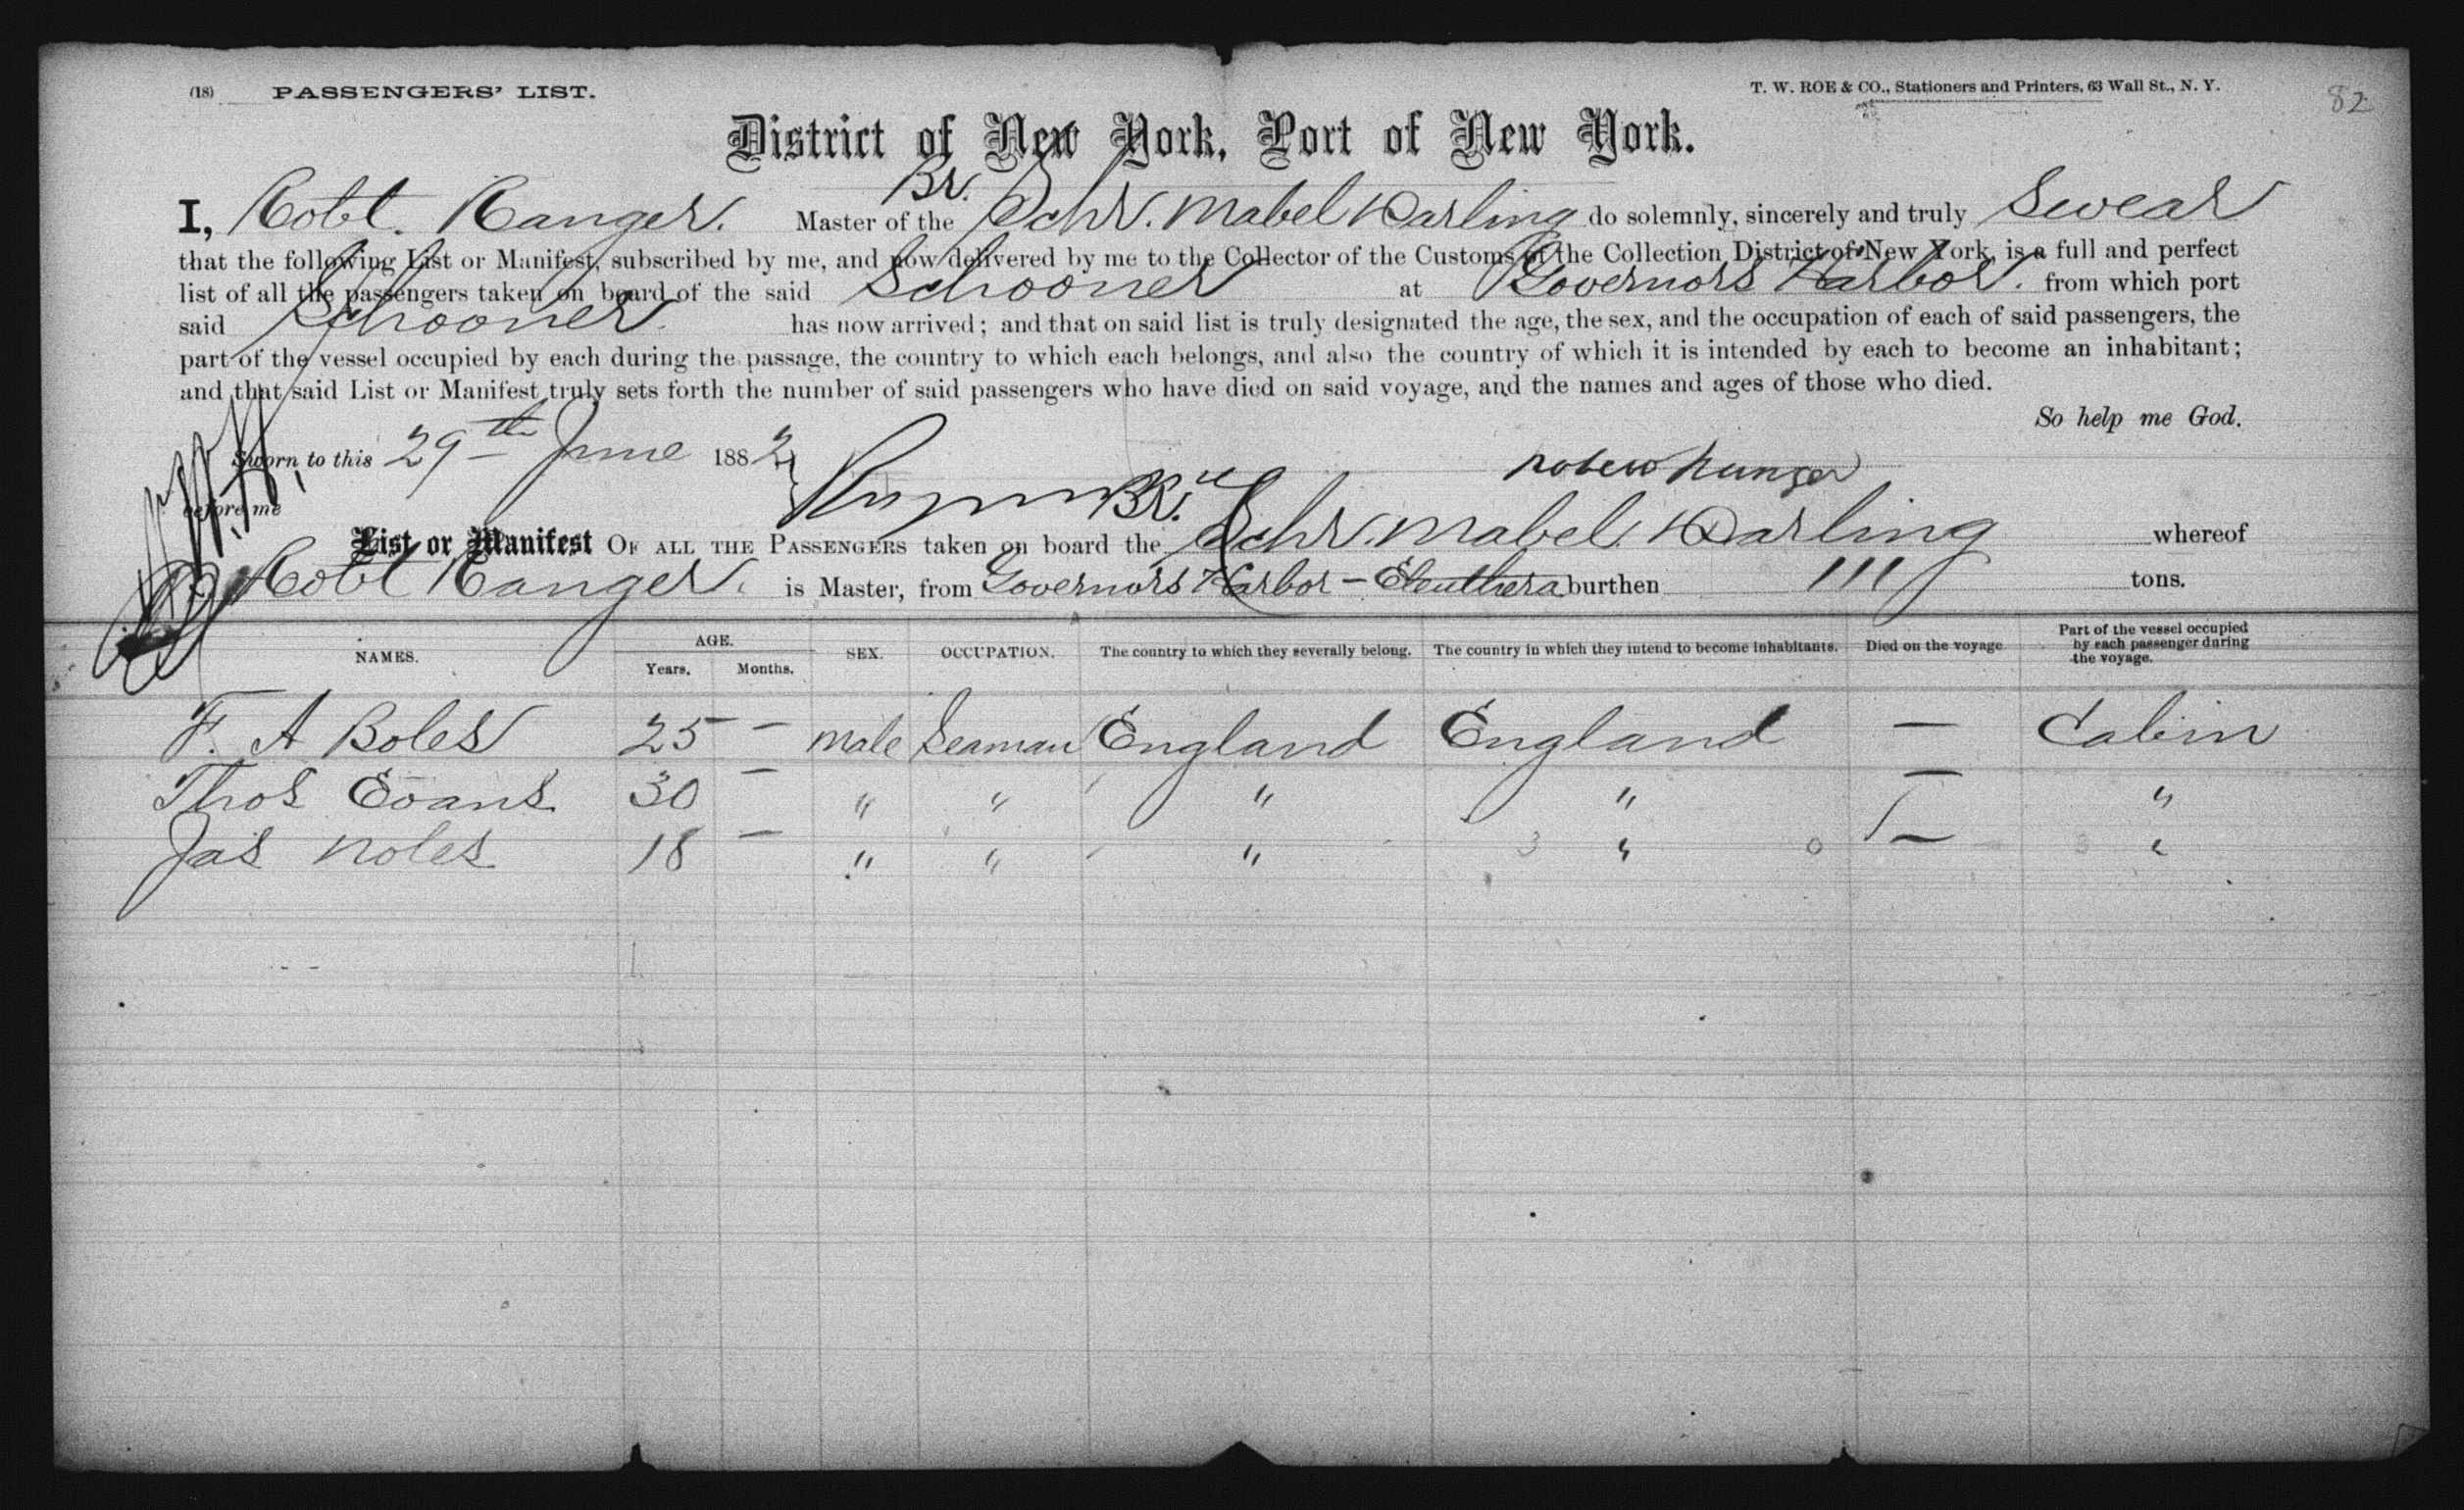 (18) PASSENGERS' LIST.
T. W. ROE & CO., Stationers and Printers, 63 Wall St., N. Y.
82
District of New York, Port of New York.
I, Robt. Ranger. Master of the Br. Schr. Mabel Darling do solemnly, sincerely and truly Swear
that the following List or Manifest, subscribed by me, and now delivered by me to the Collector of the Customs of the Collection District of New York, is a full and perfect
list of all the passengers taken on board of the said Schooner at Governors Harbor. from which port
said Schooner. has now arrived; and that on said list is truly designated the age, the sex, and the occupation of each of said passengers, the
part of the vessel occupied by each during the passage, the country to which each belongs, and also the country of which it is intended by each to become an inhabitant;
and that said List or Manifest truly sets forth the number of said passengers who have died on said voyage, and the names and ages of those who died.
So help me God.
Sworn to this 29th June 1882
before me
List or Manifest OF ALL THE PASSENGERS taken on board the Br. Schr. Mabel Darling whereof
Robt Ranger. is Master, from Governors Harbor - Eleuthera burthen 111 tons.
NAMES. AGE. Years. Months. SEX. OCCUPATION. The country to which they severally belong. The country in which they intend to become inhabitants. Died on the voyage Part of the vessel occupied by each passenger during the voyage.
F. A Boles 25 - male Seaman England England - Cabin
Thos Evans 30 - " " " " - "
Jas Noles 18 - " " " " - "